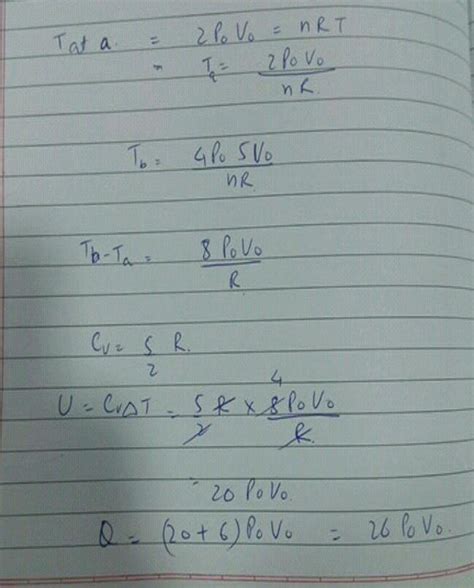 T at a. = 2P₀V₀ = nRT
~ Tₐ = 2P₀V₀ / nR.
T_b = 4P₀ 5V₀ / nR.
T_b - Tₐ = 8P₀V₀ / R
C_V = 5/2 R.
U = C_VΔT = 5/2 R × 8 4 P₀V₀ / R.
= 20 P₀V₀.
Q = (20+6)P₀V₀ = 26 P₀V₀.